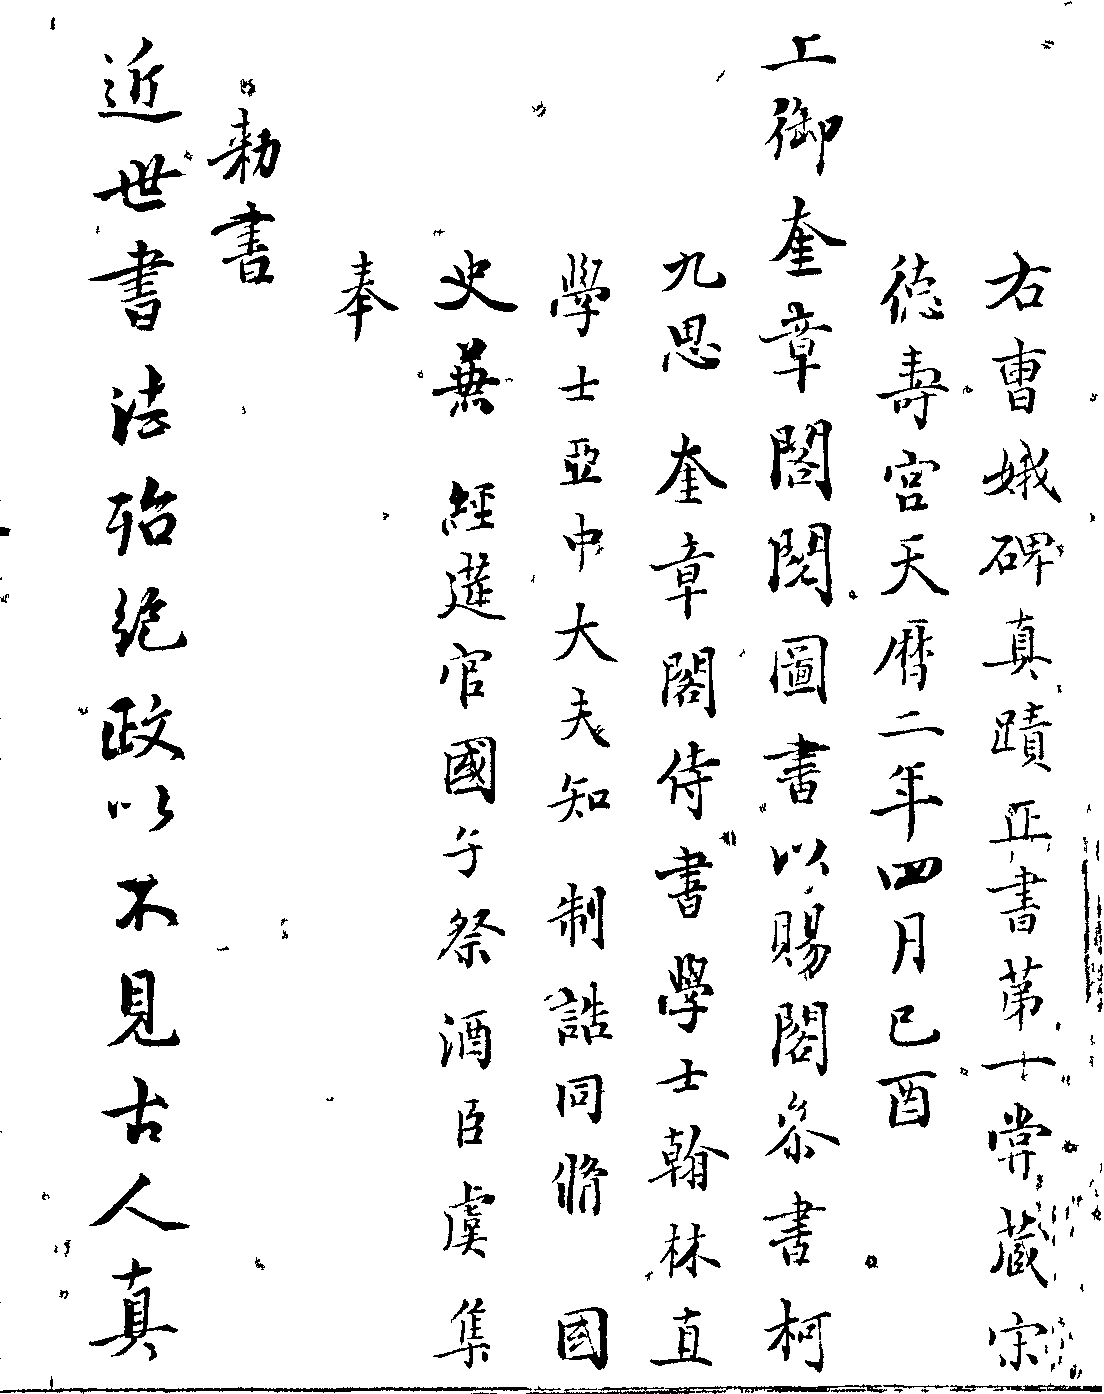 右曹娥碑真蹟正書第一嘗藏宋
德壽宮天曆二年四月己酉
上御奎章閣閱圖書以賜閣叅書柯
九思奎章閣侍書學士翰林直
學士亞中大夫知制誥同脩國
史兼經筵官國子祭酒臣虞集
奉
勅書
近世書法殆絕政以不見古人真